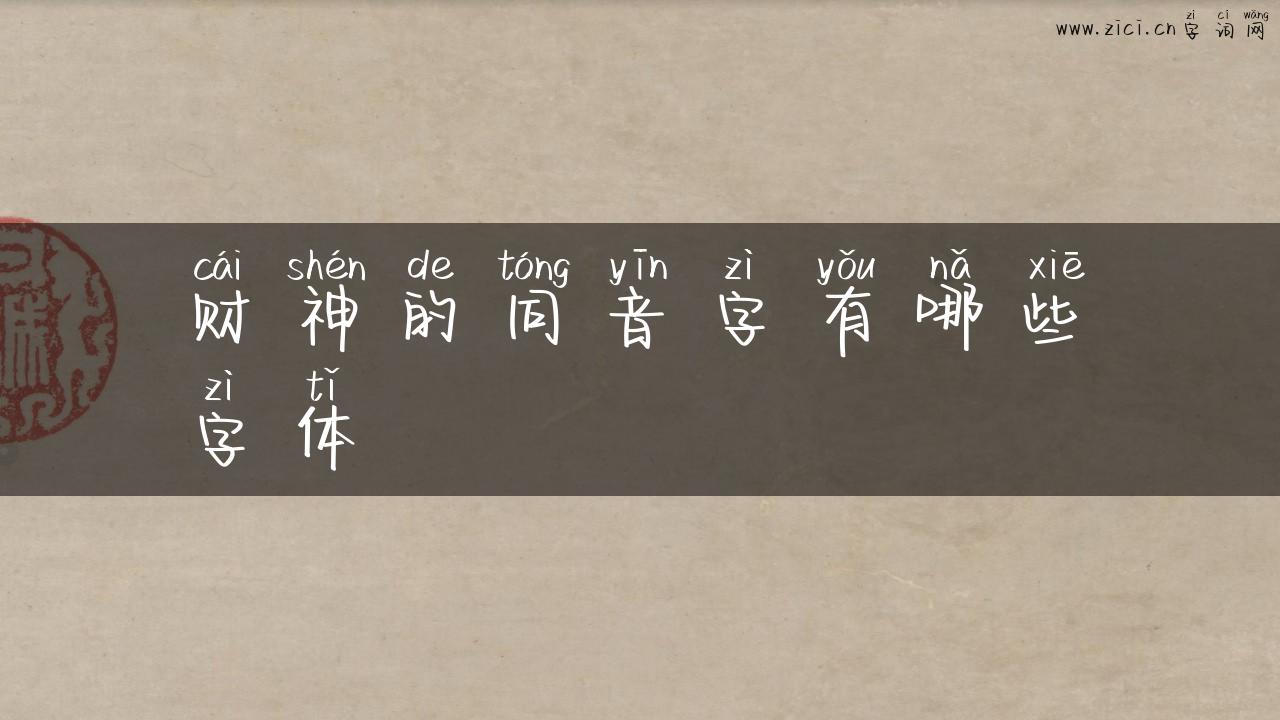 zì cí wǎng
www.zici.cn 字词网
cái shén de tóng yīn zì yǒu nǎ xiē
财神的同音字有哪些
zì tǐ
字体